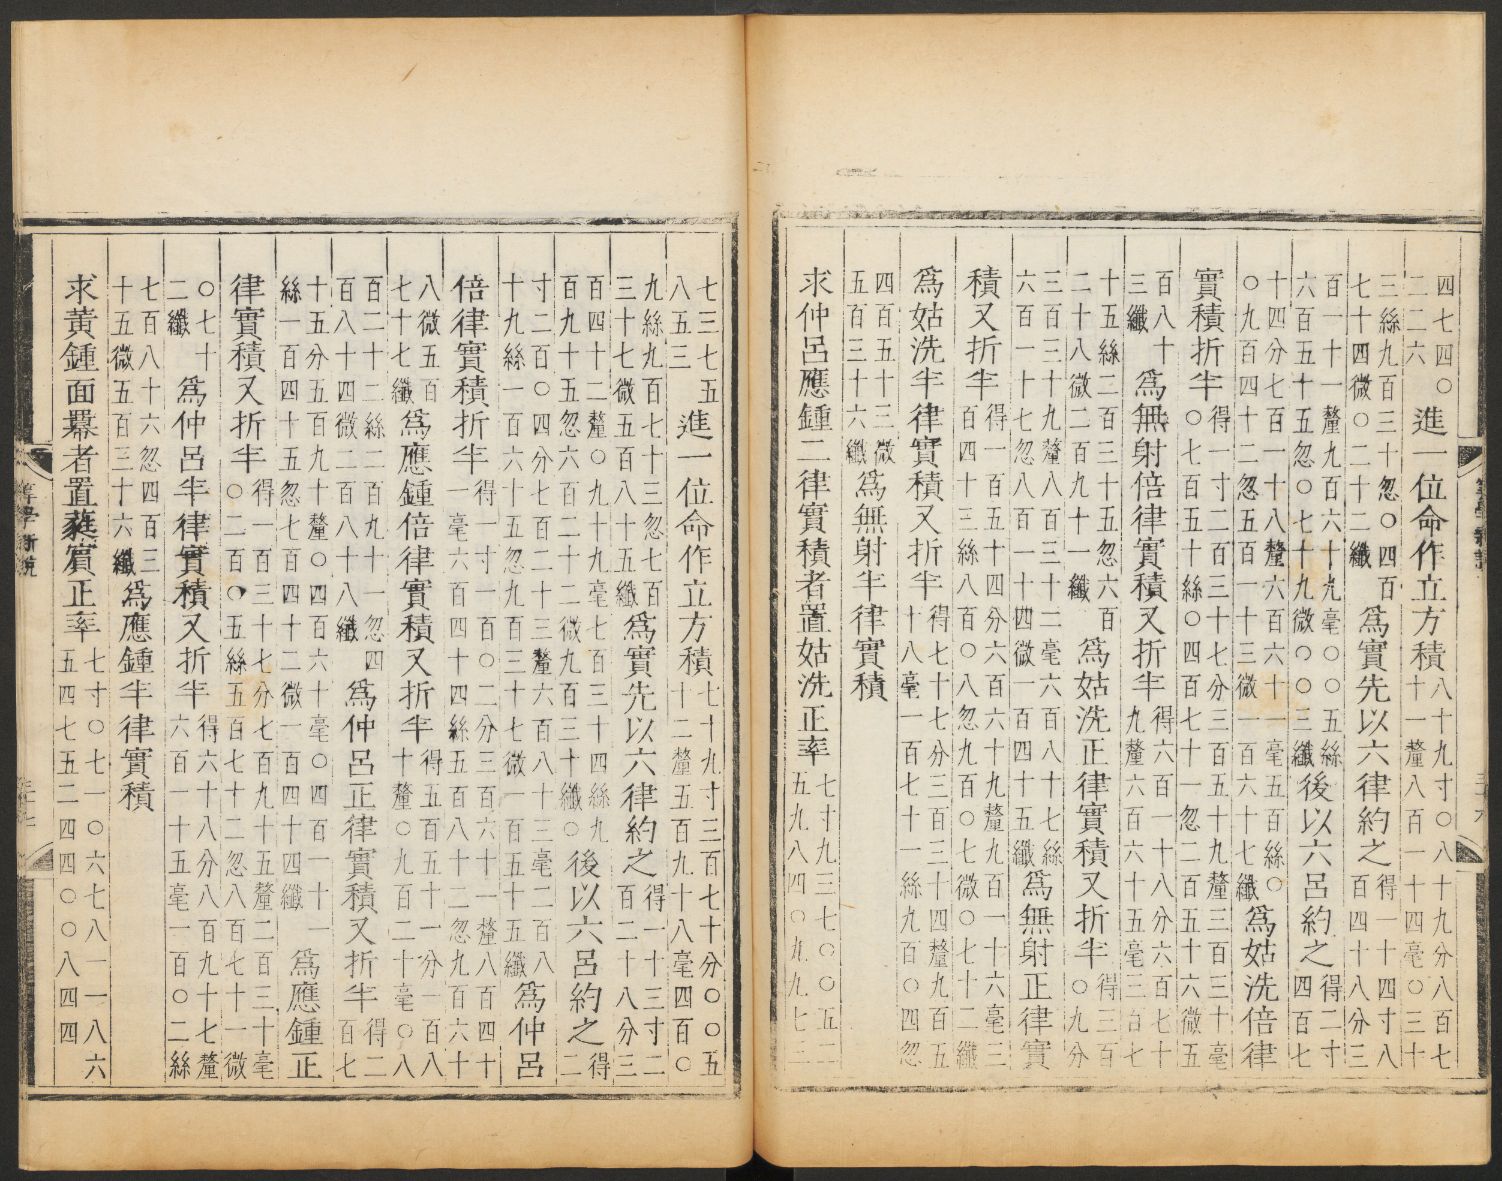 四七四〇二二六進一位命作立方積八十九寸〇八十九分八百七十一釐八百一十四毫〇三十
三絲九百三十忽〇四百七十四微〇二十二纖爲實先以六律約之得一十四寸八百四十八分三
百一十一釐九百六十九毫〇〇五絲六百五十五忽〇七十九微〇〇三纖後以六呂約之得二寸四百七
十四分七百一十八釐六百六十一毫五百絲〇〇九百四十二忽五百一十三微一百六十七纖爲姑洗倍律
實積折半得一寸二百三十七分三百五十九釐三百三十毫〇七百五十絲〇四百七十一忽二百五十六微五
百八十三纖爲無射倍律實積又折半得六百一十八分六百七十九釐六百六十五毫三百七
十五絲二百三十五忽六百二十八微二百九十一纖爲姑洗正律實積又折半得三百〇九分
三百三十九釐八百三十二毫六百八十七絲六百一十七忽八百一十四微一百四十五纖爲無射正律實
積又折半得一百五十四分六百六十九釐九百一十六毫三百四十三絲八百〇八忽九百〇七微〇七十二纖
爲姑洗半律實積又折半得七十七分三百三十四釐九百五十八毫一百七十一絲九百〇四忽
四百五十三微五百三十六纖爲無射半律實積
求仲呂應鍾二律實積者置姑洗正率七寸九三七〇〇五二五九八四〇九九七三
七三七五八五三進一位命作立方積七十九寸三百七十分〇〇五十二釐五百九十八毫四百〇
九絲九百七十三忽七百三十七微五百八十五纖爲實先以六律約之得一十三寸二百二十八分三
百四十二釐〇九十九毫七百三十四絲九百九十五忽六百二十二微九百三十纖〇後以六呂約之得二
寸二百〇四分七百二十三釐六百八十三毫二百八十九絲一百六十五忽九百三十七微一百五十五纖爲仲呂
倍律實積折半得一寸一百〇二分三百六十一釐八百四十一毫六百四十四絲五百八十二忽九百六十
八微五百七十七纖爲應鍾倍律實積又折半得五百五十一分一百八十釐〇九百二十毫〇八
百二十二絲二百九十忽四百八十四微二百八十八纖爲仲呂正律實積又折半得二百七
十五分五百九十釐〇四百六十毫〇四百一十一絲一百四十五忽七百四十二微一百四十四纖爲應鍾正
律實積又折半得一百三十七分七百九十五釐二百三十毫〇二百〇五絲五百七十二忽八百七十一微
〇七十二纖爲仲呂半律實積又折半得六十八分八百九十七釐六百一十五毫一百〇二絲
七百八十六忽四百三十五微五百三十六纖爲應鍾半律實積
求黃鍾面冪者置蕤賓正率七寸〇七一〇六七八一一八六五四七五二四四〇〇八四四